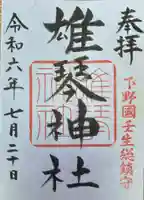 奉拝
下野國壬生総鎮守
雄琴神社
令和六年七月二十日